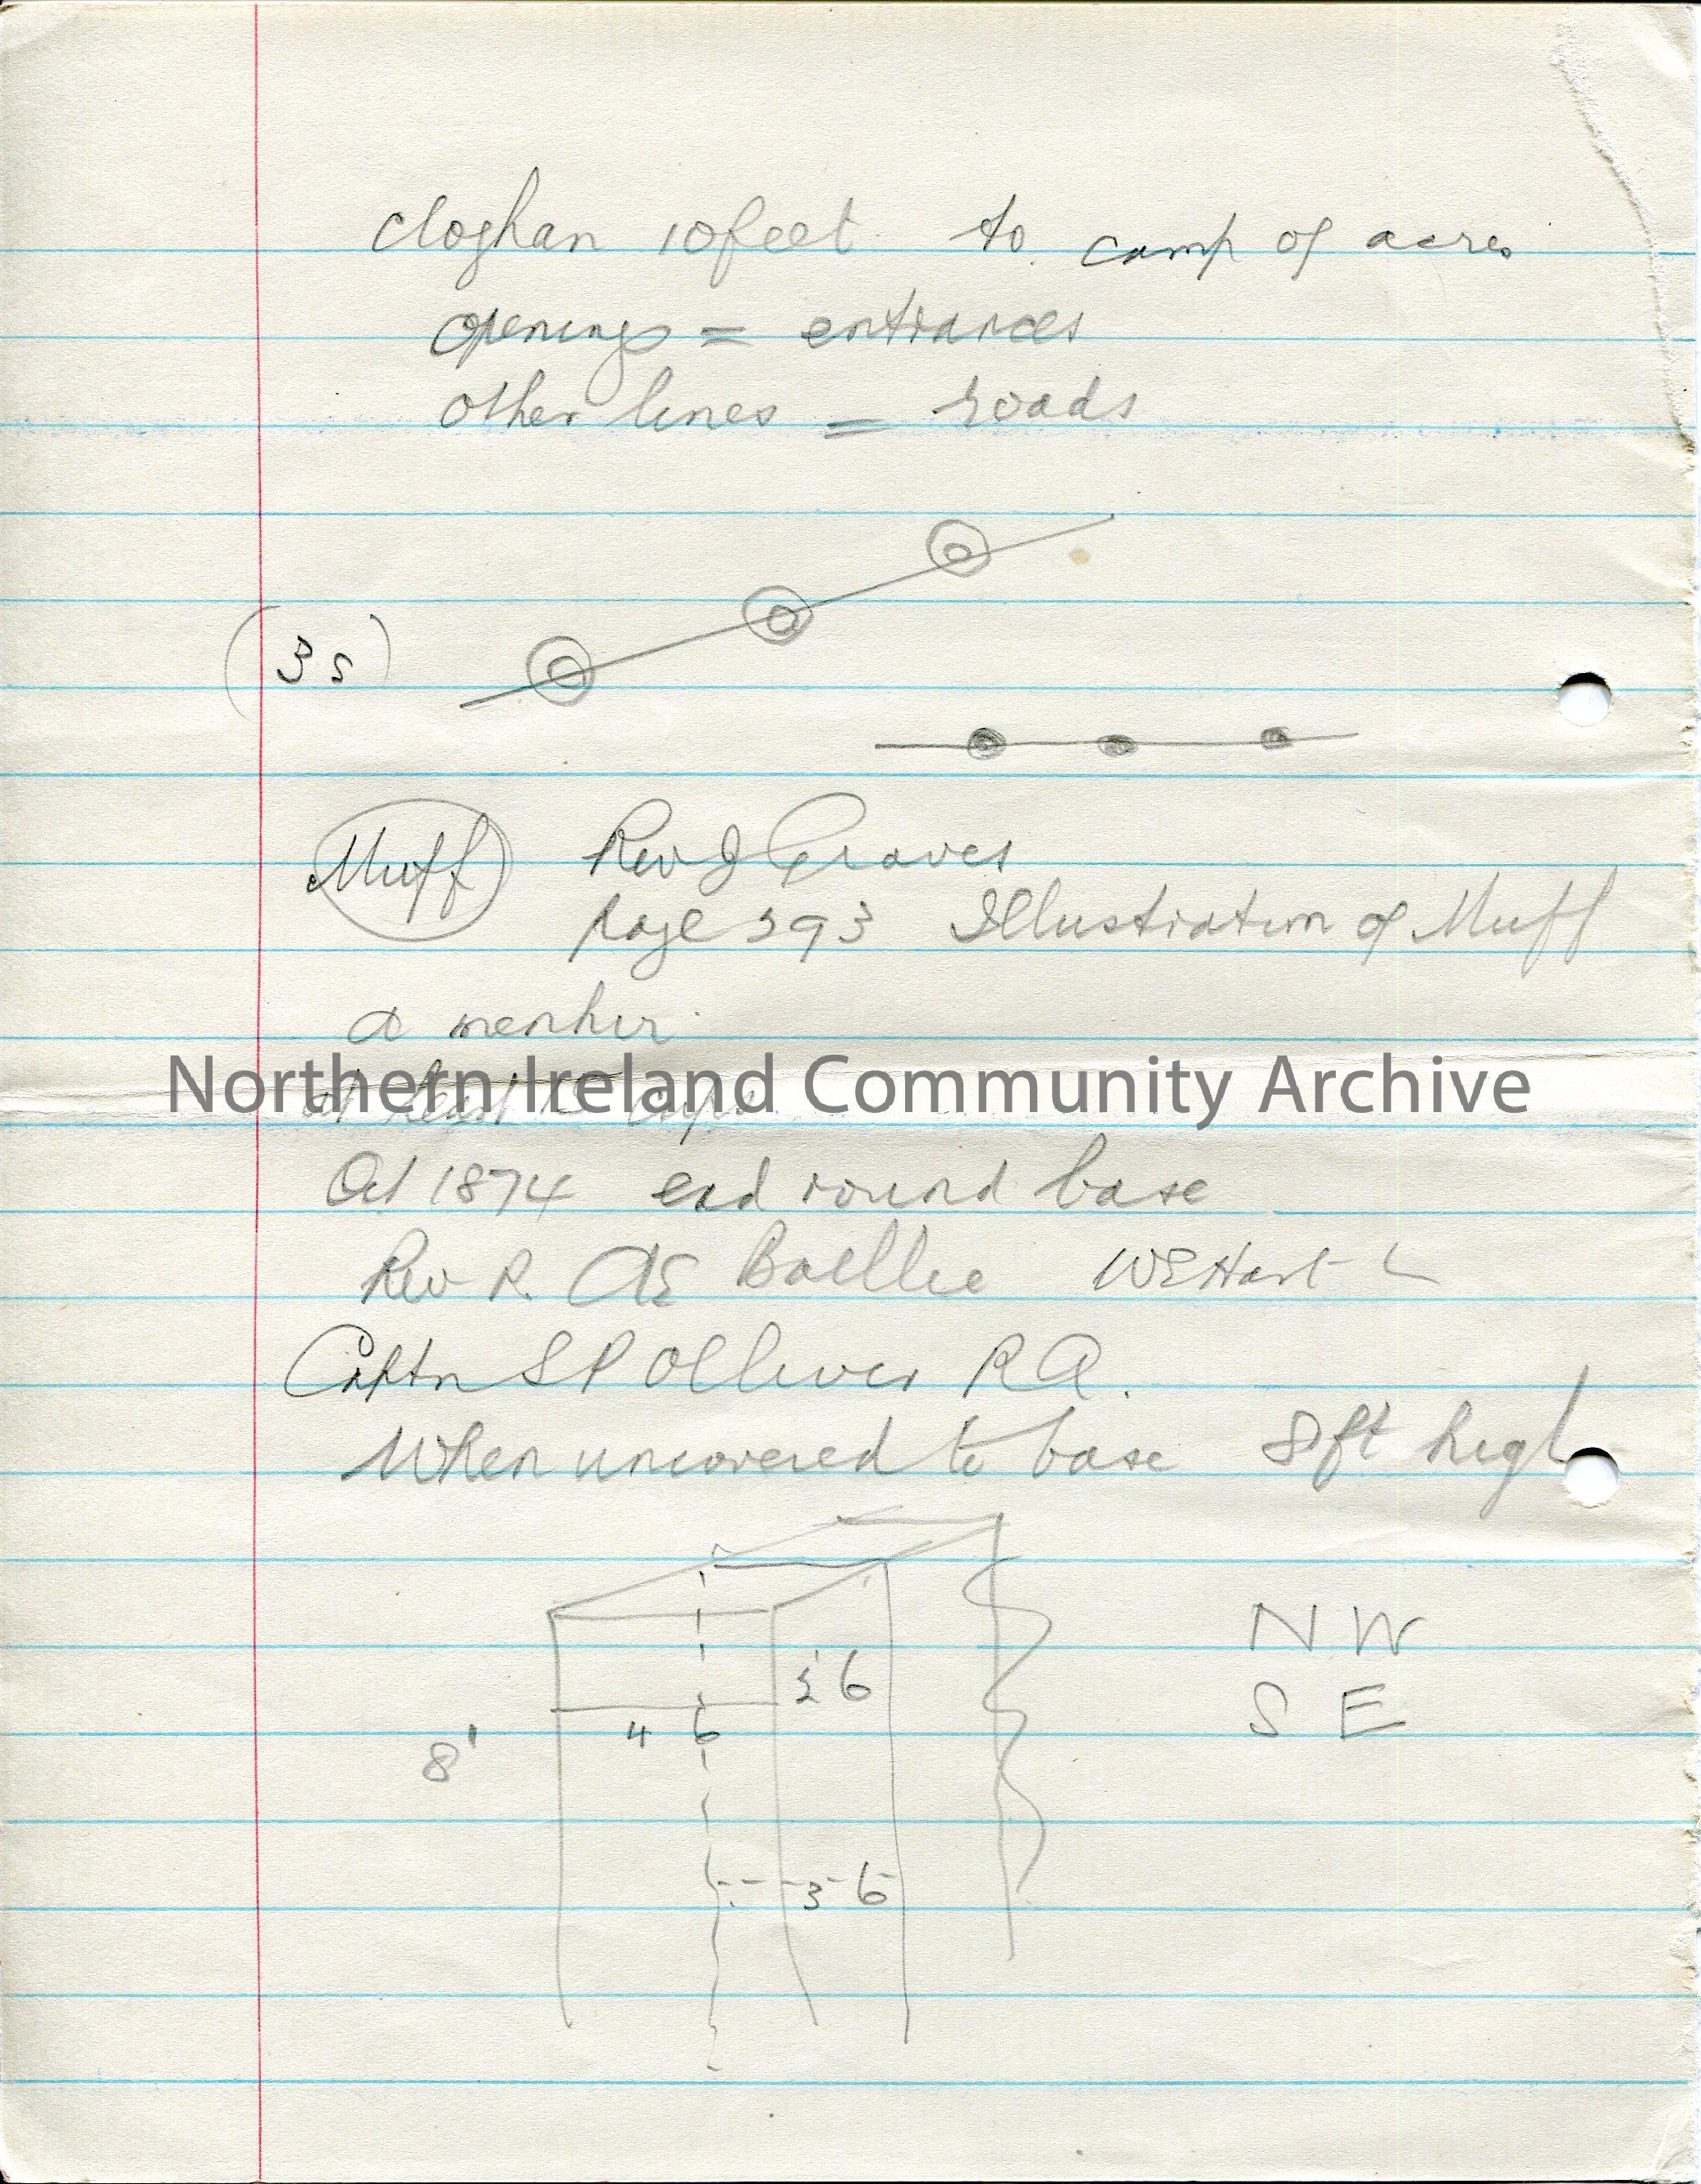 cloghan 10 feet to camp of acres
openings = entrances
other lines = roads
(3s)
Muff Rev J Graves
page 293 Illustration of Muff
a menhir
Northern Ireland Community Archive
at least cups
Oct 1874 end round base
Rev R. WEHart
Captn S P Olliver RA.
When uncovered to base 8ft high
NW
6
SE
4 6
8'
3 6